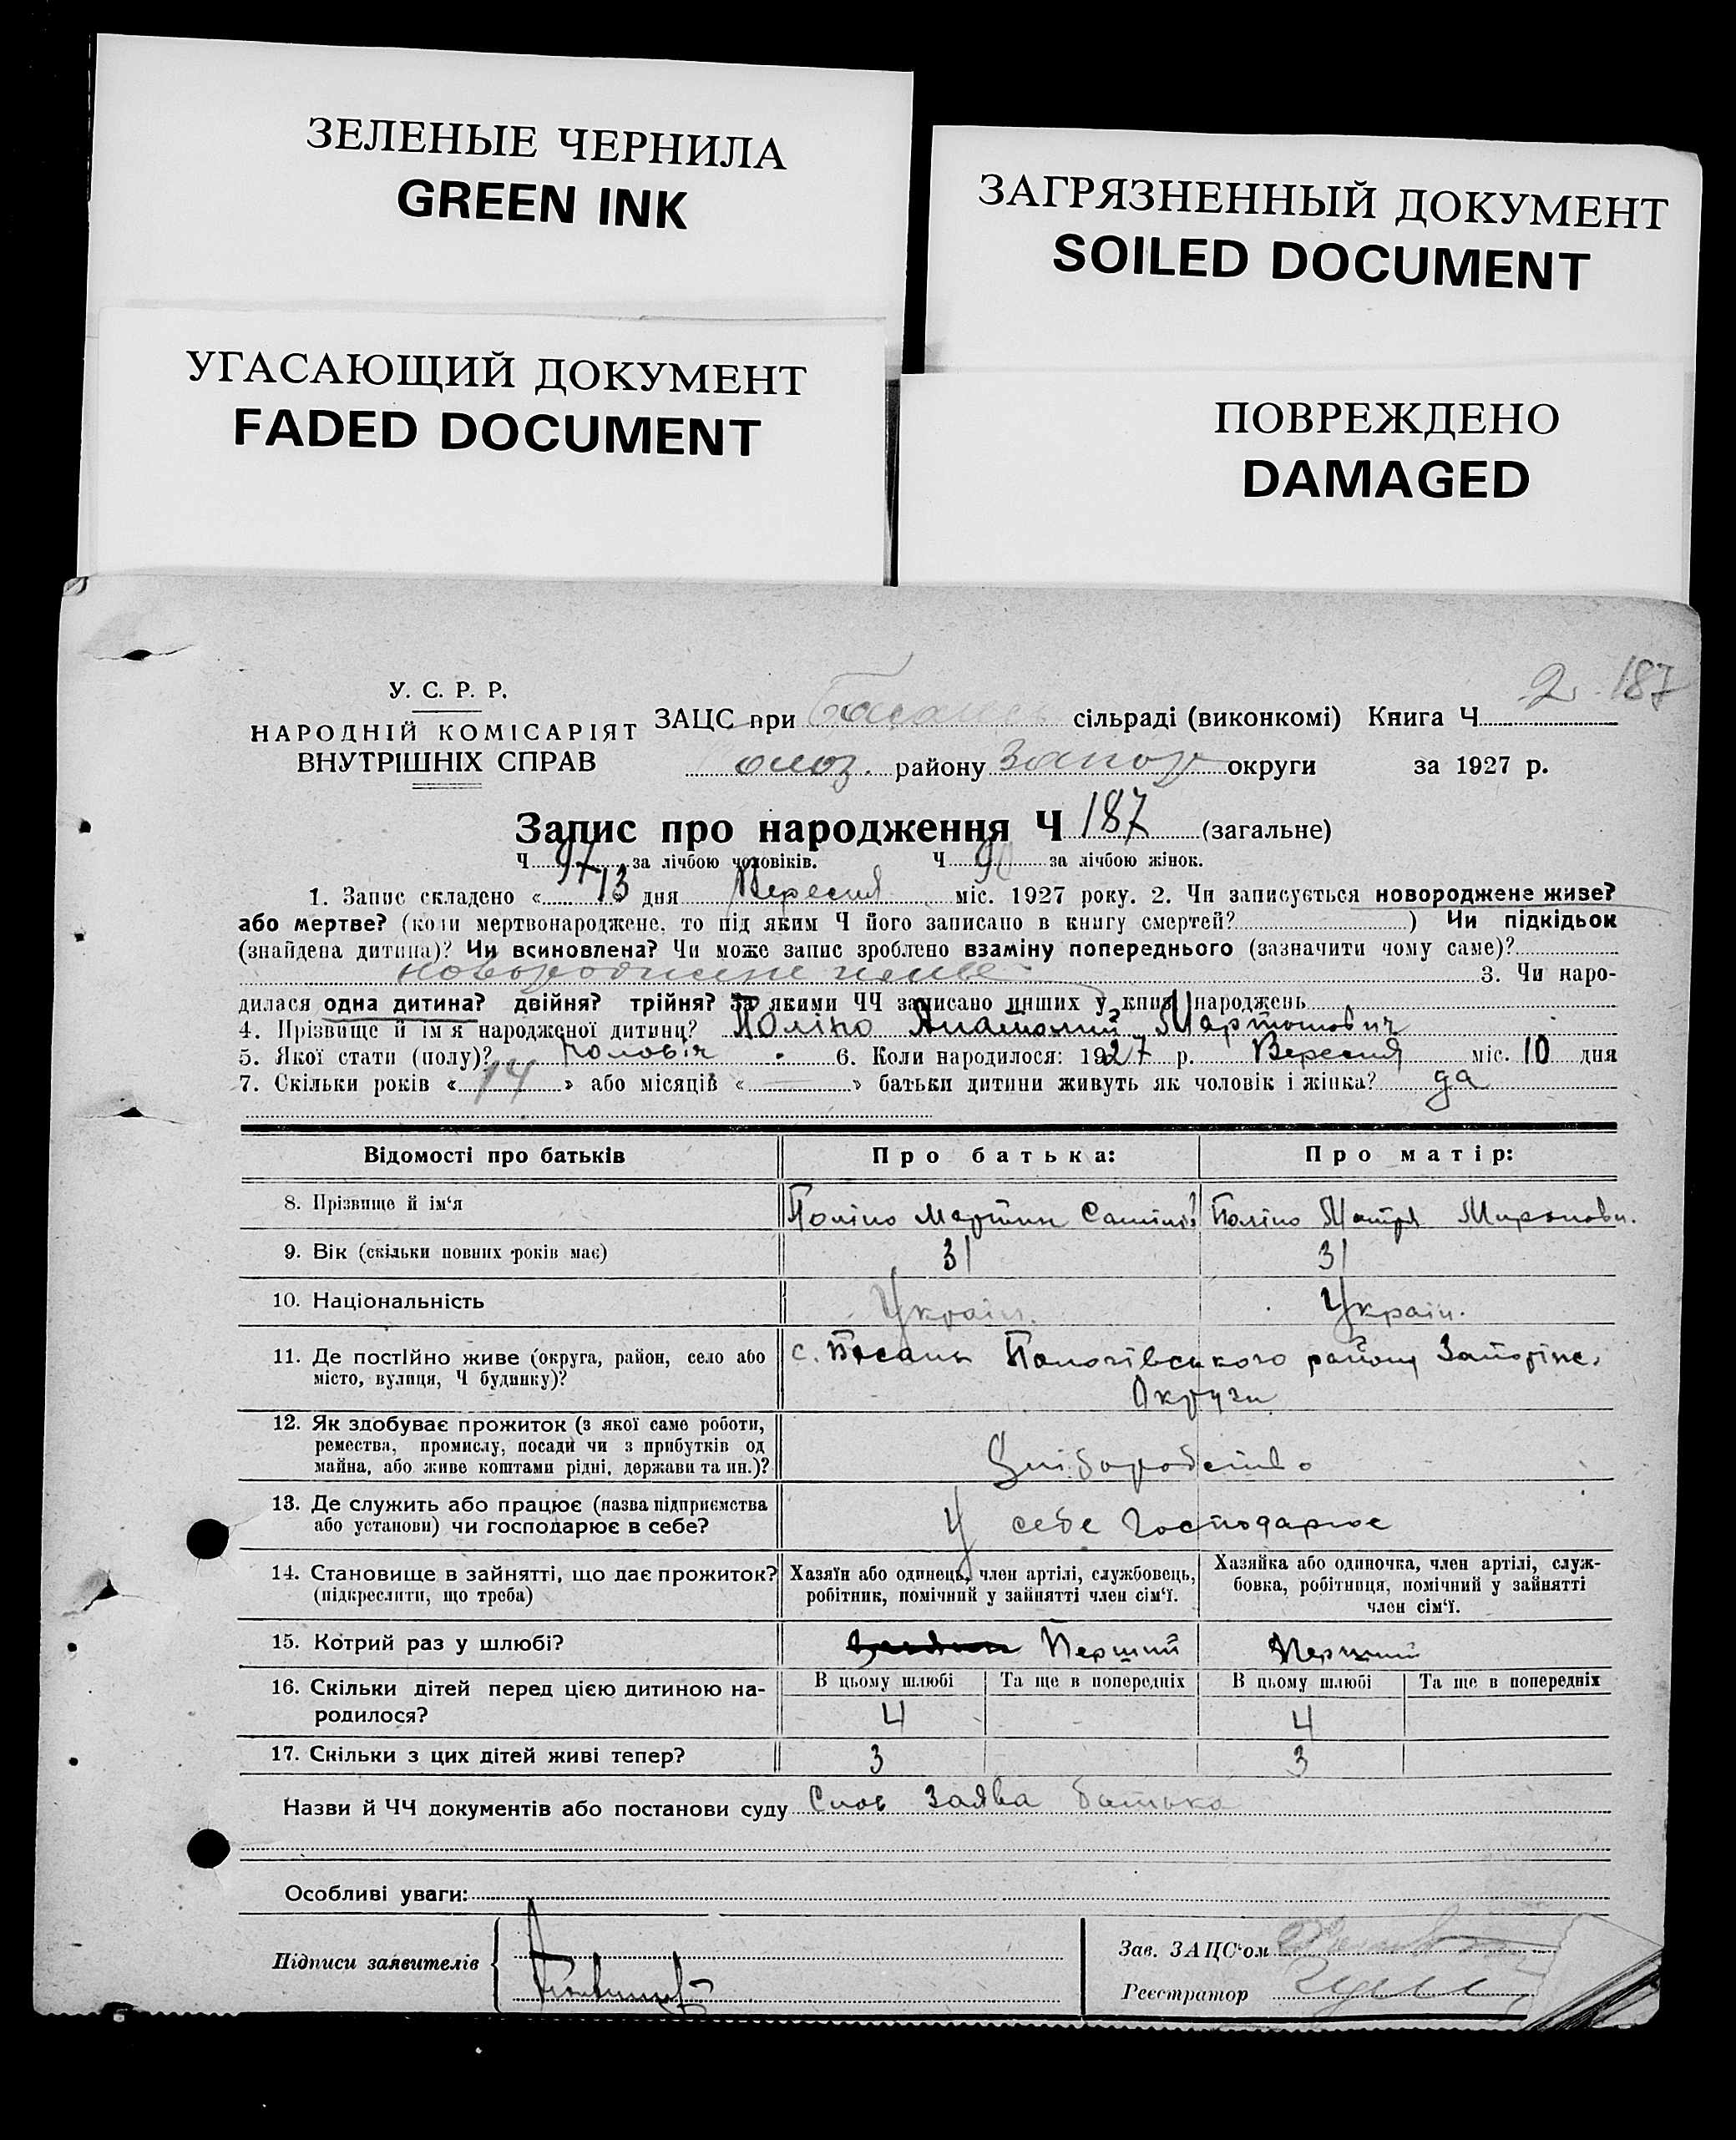 ЗЕЛЕНЫЕ ЧЕРНИЛА
GREEN INK
ЗАГРЯЗНЕННЫЙ ДОКУМЕНТ
SOILED DOCUMENT
УГАСАЮЩИЙ ДОКУМЕНТ
FADED DOCUMENT
ПОВРЕЖДЕНО
DAMAGED
187
У. С. Р. Р.
НАРОДНІЙ КОМІСАРІЯТ
ВНУТРІШНІХ СПРАВ
ЗАЦС при сільраді (виконкомі) Книга Ч 2
району Запор округи за 1927 р.
Запис про народження Ч 187 (загальне)
Ч 97 за лічбою чоловіків. Ч 90 за лічбою жінок.
1. Запис складено « 13 дня Вересня міс. 1927 року. 2. Чи записується новороджене живе?
або мертве? (коли мертвонароджене, то під яким Ч його записано в книгу смертей? ) Чи підкідьок
(знайдена дитина)? Чи всиновлена? Чи може запис зроблено взаміну попереднього (зазначити чому саме)?
новороджене живе 3. Чи наро-
дилася одна дитина? двійня? трійня? За якими ЧЧ записано инших у книзі народжень
4. Прізвище й ім'я народженої дитини? Поліно Анатолий Мартинович
5. Якої стати (полу)? Чоловіч 6. Коли народилося: 1927 р. Вересня міс. 10 дня
7. Скільки років « 14 » або місяців « — » батьки дитини живуть як чоловік і жінка? да
Відомості про батьків Про батька: Про матір:
8. Прізвище й ім'я Поліно Мартин Поліно Мотря Миронови.
9. Вік (скільки повних років має) 31 31
10. Національність Україн. Україн.
11. Де постійно живе (округа, район, село або
місто, вулиця, Ч будинку)? с. Басань Пологівського району Запоріж.
Округи
12. Як здобуває прожиток (з якої саме роботи,
ремества, промислу, посади чи з прибутків од
майна, або живе коштами рідні, держави та ин.)? Хліборобство
13. Де служить або працює (назва підприємства
або установи) чи господарює в себе? У себе Господарює
14. Становище в зайнятті, що дає прожиток?
(підкреслити, що треба)
Хазяїн або одинець, член артілі, службовець,
робітник, помічний у зайнятті член сім'ї.
Хазяйка або одиночка, член артілі, служ-
бовка, робітниця, помічний у зайнятті
член сім'ї.
15. Котрий раз у шлюбі? Перший Перший
16. Скільки дітей перед цією дитиною на-
родилося?
В цьому шлюбі Та ще в попередніх В цьому шлюбі Та ще в попередніх
4 - 4
17. Скільки з цих дітей живі тепер? 3 3
Назви й ЧЧ документів або постанови суду Слов Заява батька
Особливі уваги:
Підписи заявителів
Зав. ЗАЦС'ом
Реєстратор